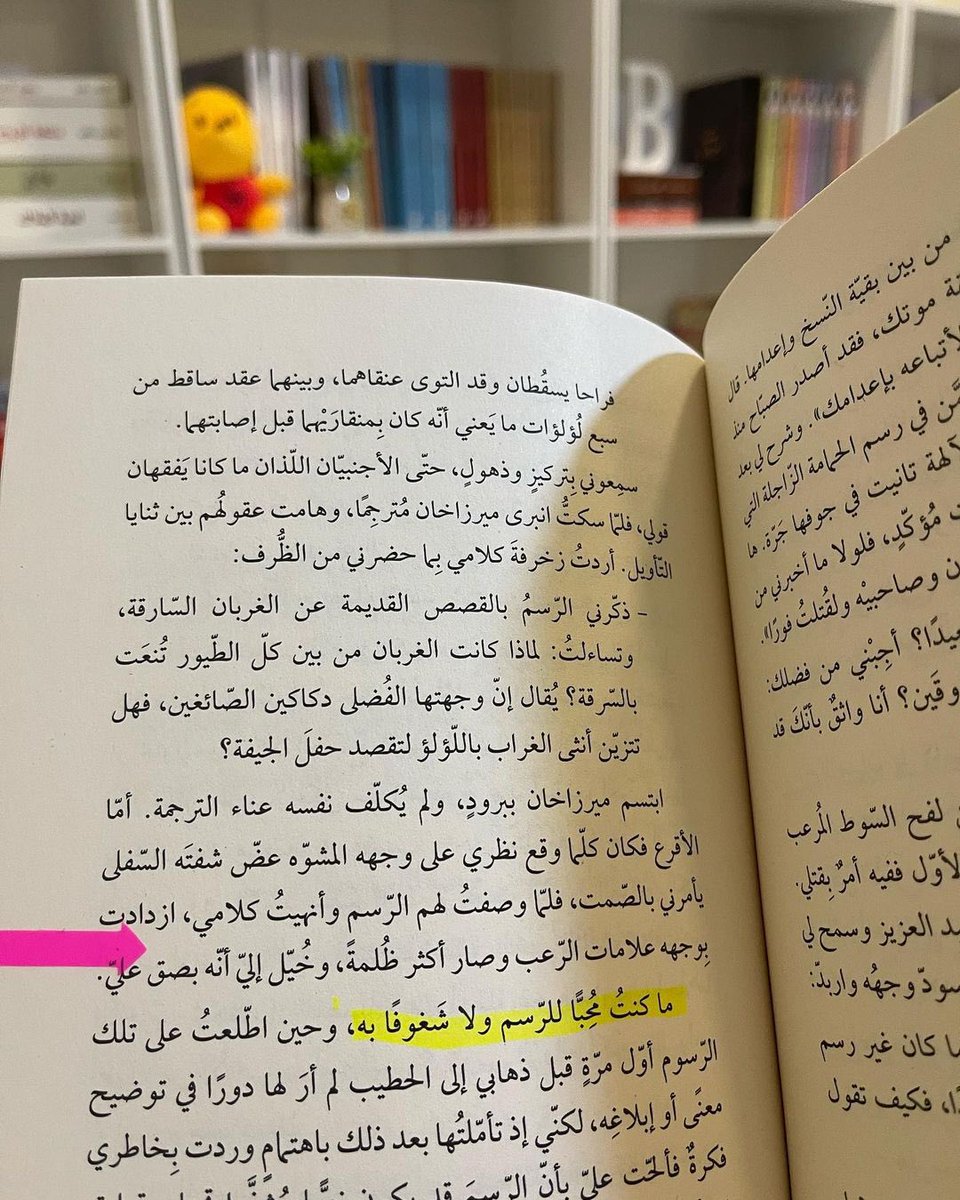 من بين بقيّة النّسخ وإعدامها. قال
موتك، فقد أصدر الصّباح منذ
لأتباعه بإعدامك». وشرح لي بعد
في رسم الحمامة الزّاجلة التي
تانيت في جوفها جَرّة. ها
مُؤكّدٍ، فلولا ما أخبرني من
وصاحبيْه ولقُتلتُ فورًا».
أجِبْني من فضلك:
أنا واثقٌ بأنّكَ قد
لفح السّوط المُرعب
ففيه أمرٌ بِقتلي.
العزيز وسمح لي
وجهُه واربدّ:
كان غير رسم
فكيف تقول
فراحا يسقُطان وقد التوى عنقاهما، وبينهما عقد ساقط من
سبع لُؤلؤات ما يَعني أنّه كان بِمنقارَيْهما قبل إصابتهما.
سمِعوني بِتركيزٍ وذهولٍ، حتّى الأجنبيّان اللّذان ما كانا يَفقهان
قولي، فلمّا سكتُّ انبرى ميرزاخان مُترجِمًا، وهامت عقولُهم بين ثنايا
التّأويل. أردتُ زخرفةَ كلامي بِما حضرني من الظُّرف:
- ذكّرني الرّسمُ بالقصص القديمة عن الغربان السّارقة،
وتساءلتُ: لماذا كانت الغربان من بين كلّ الطّيور تُنعَت
بالسّرقة؟ يُقال إنّ وجهتها الفُضلى دكاكين الصّائغين، فهل
تتزيّن أنثى الغراب باللّؤلؤ لتقصد حفلَ الجيفة؟
ابتسم ميرزاخان ببرودٍ، ولم يُكلّف نفسه عناء الترجمة. أمّا
الأقرع فكان كلّما وقع نظري على وجهه المشوّه عضّ شفتَه السّفلى
يأمرني بالصّمت، فلمّا وصفتُ لهم الرّسم وأنهيتُ كلامي، ازدادت
بِوجهه علامات الرّعب وصار أكثر ظُلمةً، وخُيّل إليّ أنّه بصق عليّ.
ما كنتُ مُحِبًّا للرّسم ولا شَغوفًا به، وحين اطّلعتُ على تلك
الرّسوم أوّل مرّةٍ قبل ذهابي إلى الحطيب لم أرَ لها دورًا في توضيح
معنًى أو إبلاغِه، لكنّي إذ تأمّلتُها بعد ذلك باهتمامٍ وردت بِخاطري
فكرةٌ فألحّت عليّ بأنّ الرّسمَ قد يكون
B